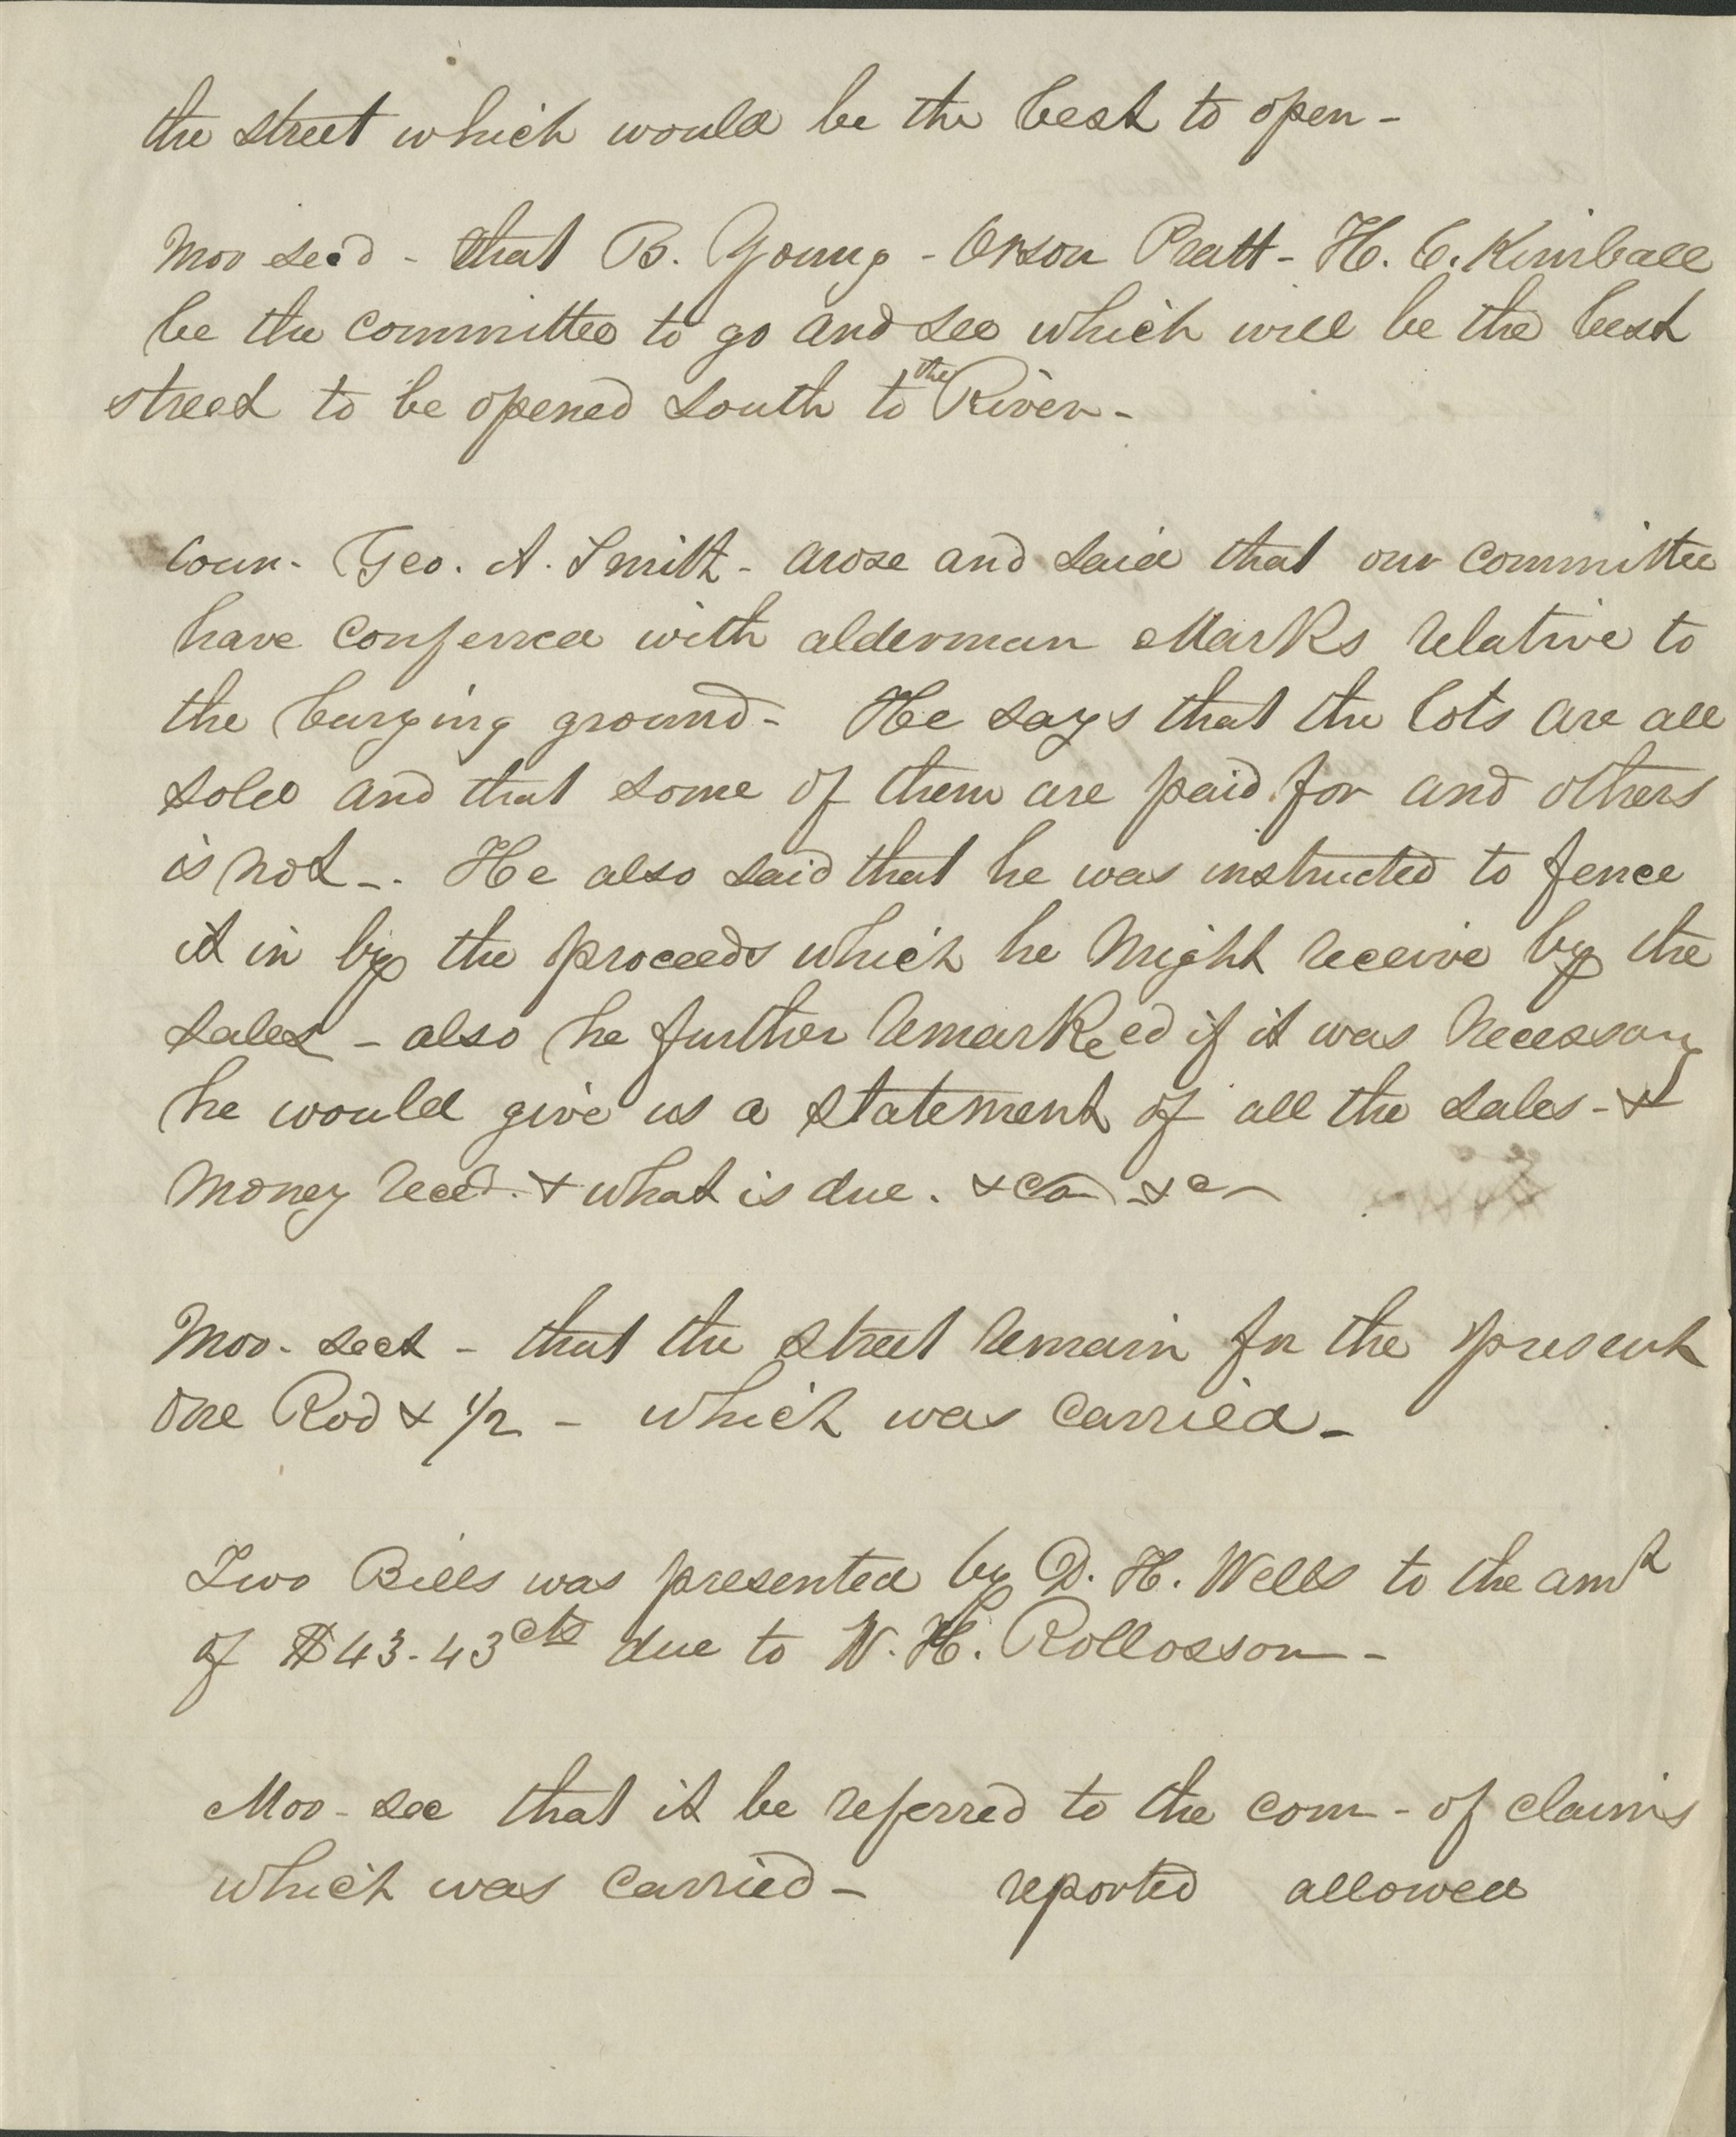 the street which would be the best to open -
Mov secd - that B. Young - Orson Pratt - H. C. Kimball
be the committee to go and see which will be the best
street to be opened south to the River -
Coun. Geo. A. Smith - arose and said that our committee
have conferred with alderman Marks relative to
the burying ground - He says that the lots are all
sold and that some of them are paid for and others
is not -. He also said that he was instructed to fence
it in by the proceeds which he might receive by the
sales - also he further remarkeed if it was necessary
he would give us a statement of all the sales - &
money recd. & what is due. &c &c
Mov. secd - that the street remain for the present
one Rod & 1/2 - which was carried -
Two Bills was presented by D. H. Wells to the amt
of $43.43cts due to W. H. Rollosson -
Mov - sec that it be referred to the com - of claims
which was carried - reported allowed